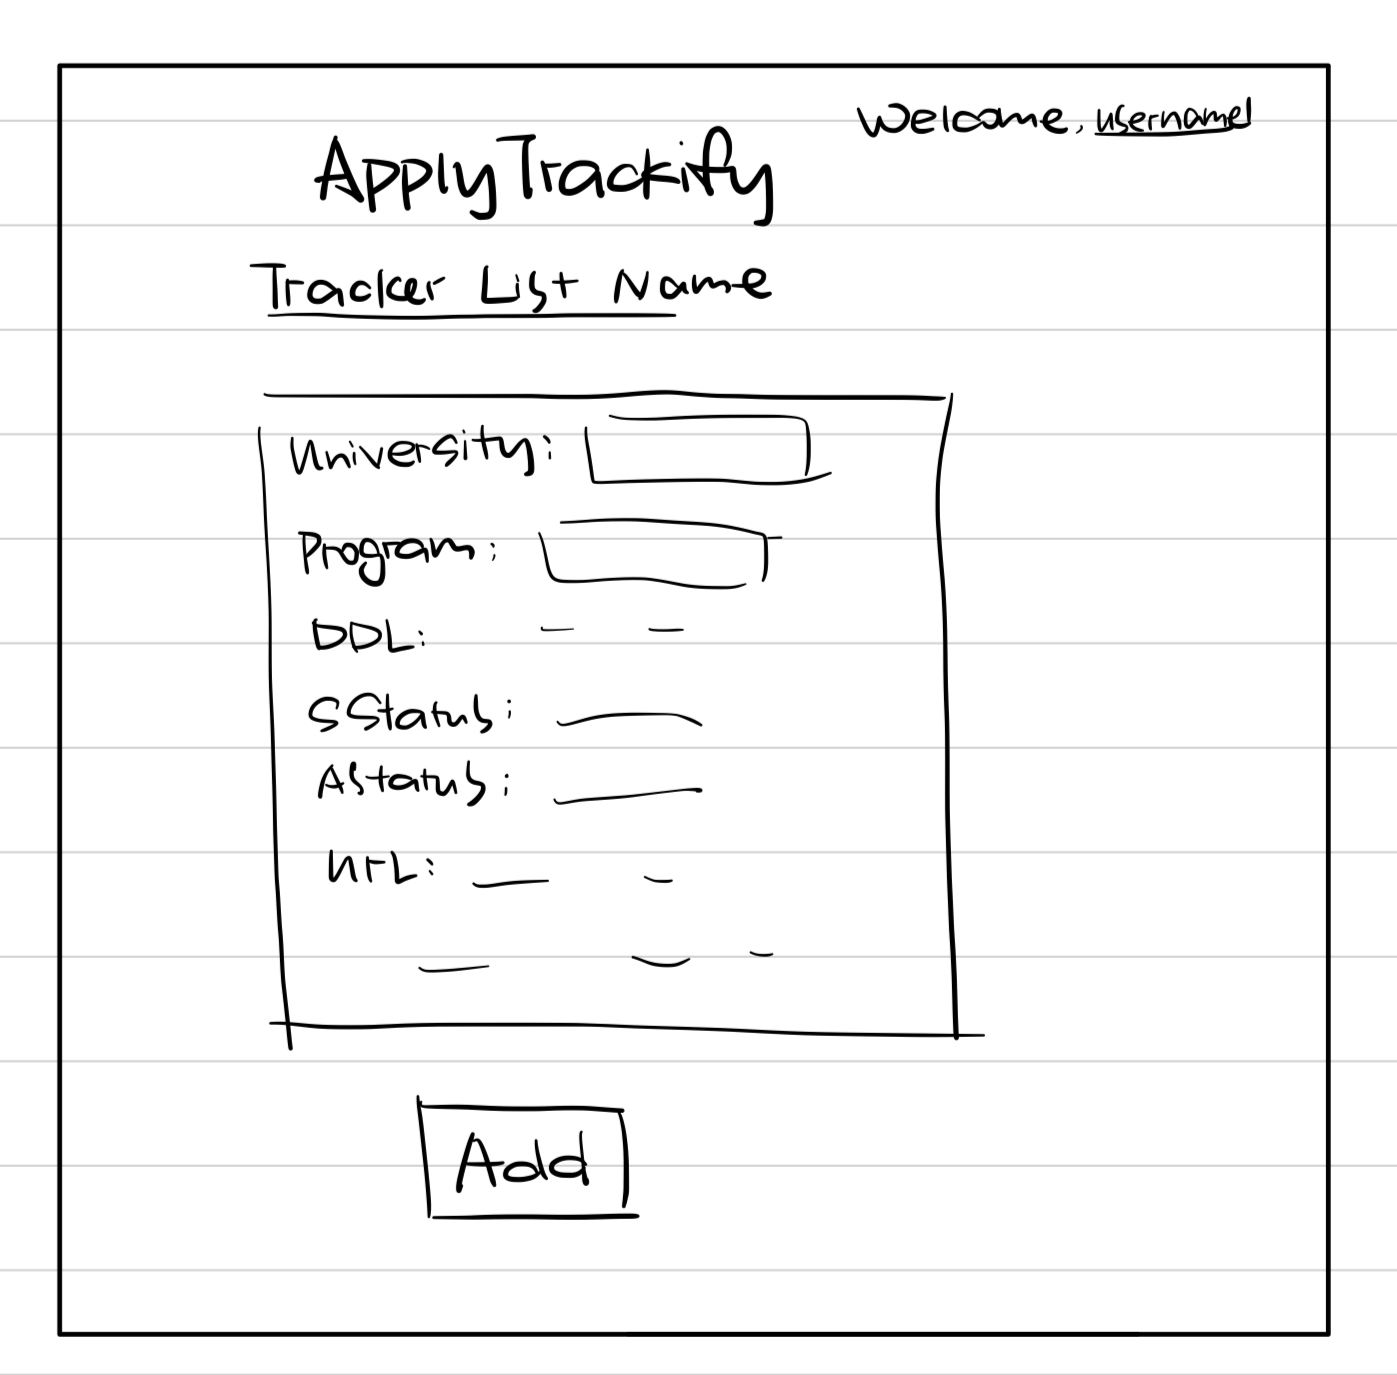 Welcome, username!
ApplyTrackify
Tracker List Name
University:
Program:
DDL:
SStatus:
AStatus:
UrL:
Add